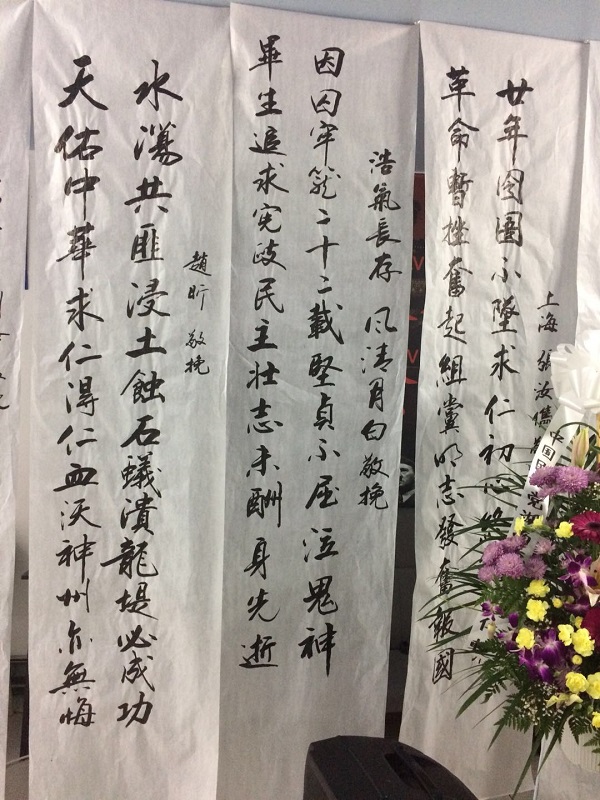 上海 張汝
廿年囹圄不墜求仁初心
革命暫挫奮起組黨明志發奮報國
中国民
浩氣長存 风清月白敬挽
因囚牢籠二十二載堅貞不屈泣鬼神
畢生追求宪政民主壯志未酬身先逝
趙昕 敬挽
水蕩共匪浸土蝕石蟻潰龍堤必成功
天佑中華求仁得仁血沃神州亦無悔